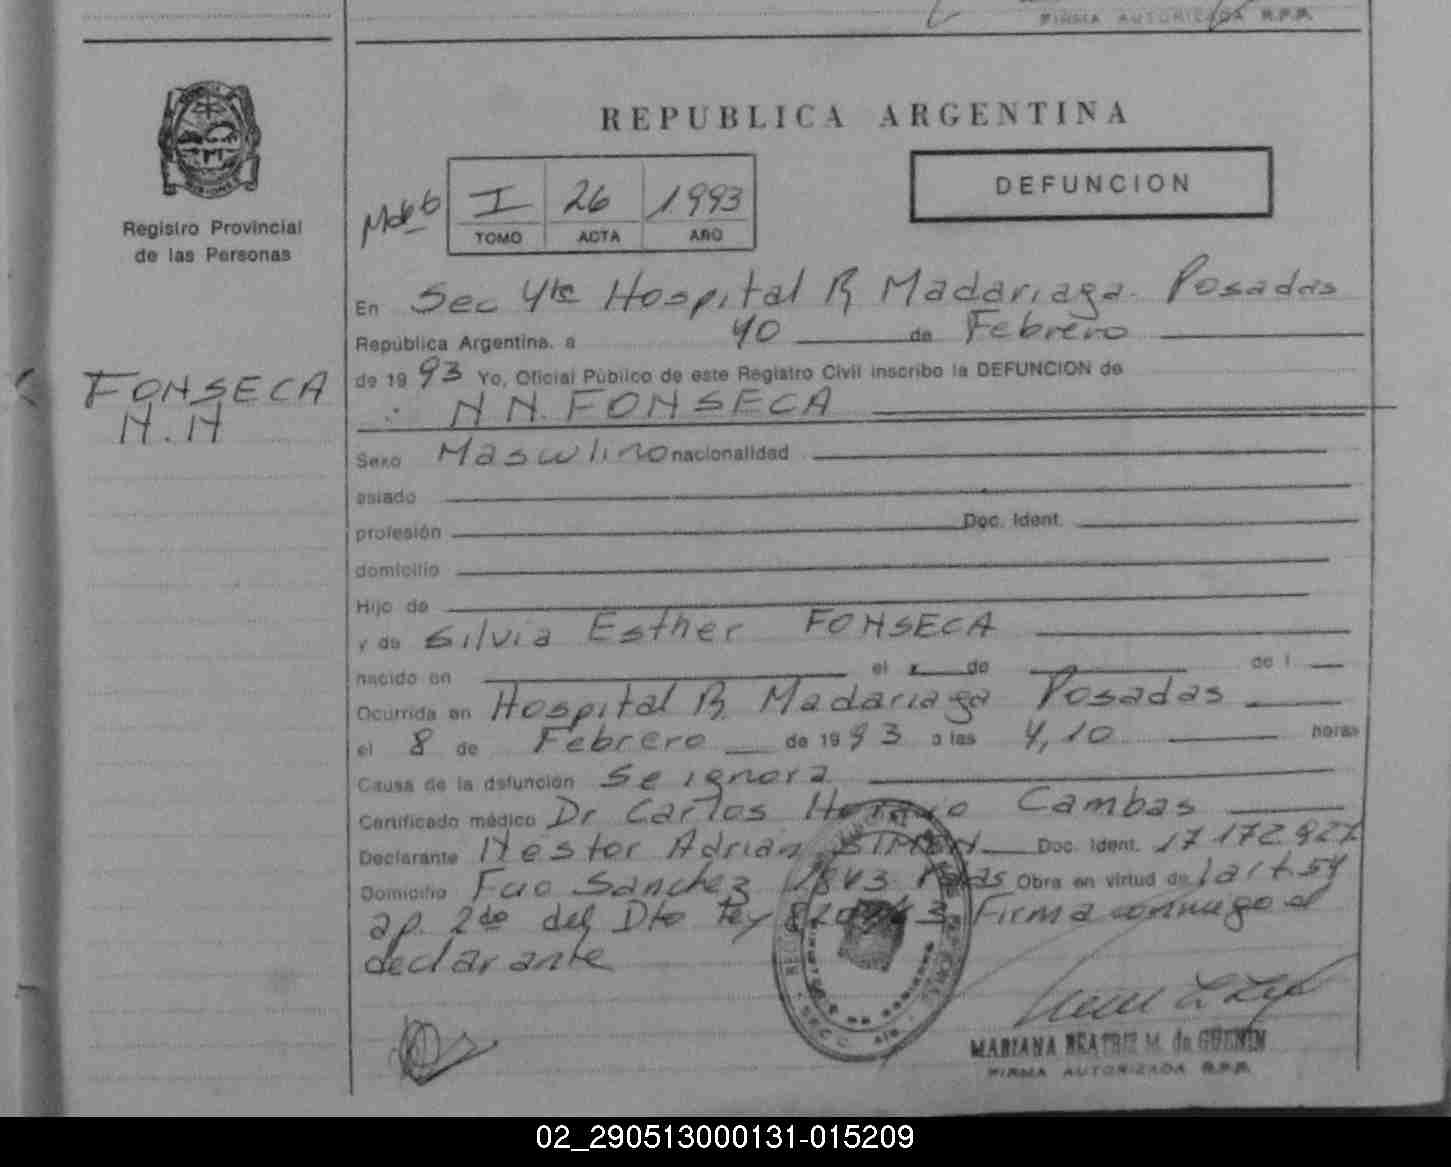 FIRMA AUTORIZADA R.P.P.
REPUBLICA ARGENTINA
DEFUNCION
I 26 1993
TOMO ACTA AÑO
Registro Provincial
de las Personas
En Sec 4ta Hospital R Madariaga. Posadas
República Argentina, a 10 de Febrero
de 1993 Yo, Oficial Público de este Registro Civil inscribo la DEFUNCION de
FONSECA
N.N
N N. FONSECA
Sexo Masculino nacionalidad
estado
profesión Doc. Ident.
domicilio
Hijo de
y de Silvia Esther FONSECA
nacido en el de de 1
Ocurrida en Hospital R. Madariaga Posadas
el 8 de Febrero de 1993 a las 4,10 horas
Causa de la defunción Se ignora
Certificado médico Dr Carlos Horacio Cambas
Declarante Nestor Adrian Doc. Ident. 17 172.927
Domicilio Fcio Sanchez 1843 Pdas Obra en virtud de l art. 54
ap. 2do del Dto Ley Firma conmigo el
declarante
MARIANA BEATRIZ M. de GUENIN
FIRMA AUTORIZADA R.P.P.
02_290513000131-015209